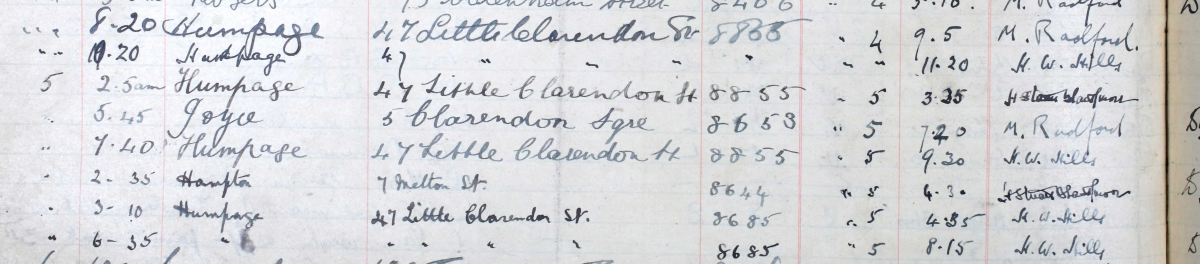 8.20 Humpage 47 Little Clarendon St 8855 " 4 9.5 M. Radford.
" " 10.20 Humpage 47 " " " " " " 11.20 H. W. Hills
5 2.5am Humpage 47 Little Clarendon St 8855 " 5 3.35
" 5.45 Joyce 5 Clarendon Sqre 8653 " 5 7.20 M. Radford
" 7.40 Humpage 47 Little Clarendon St 8855 " 5 9.30 H. W. Hills
" 2-35 Hampton 7 Melton St. 8644 " 5 4.30
" 3-10 Humpage 47 Little Clarendon St. 8685 " 5 4.35 H. W. Hills
" 6-35 " " " " " 8685 " 5 8.15 H. W. Hills